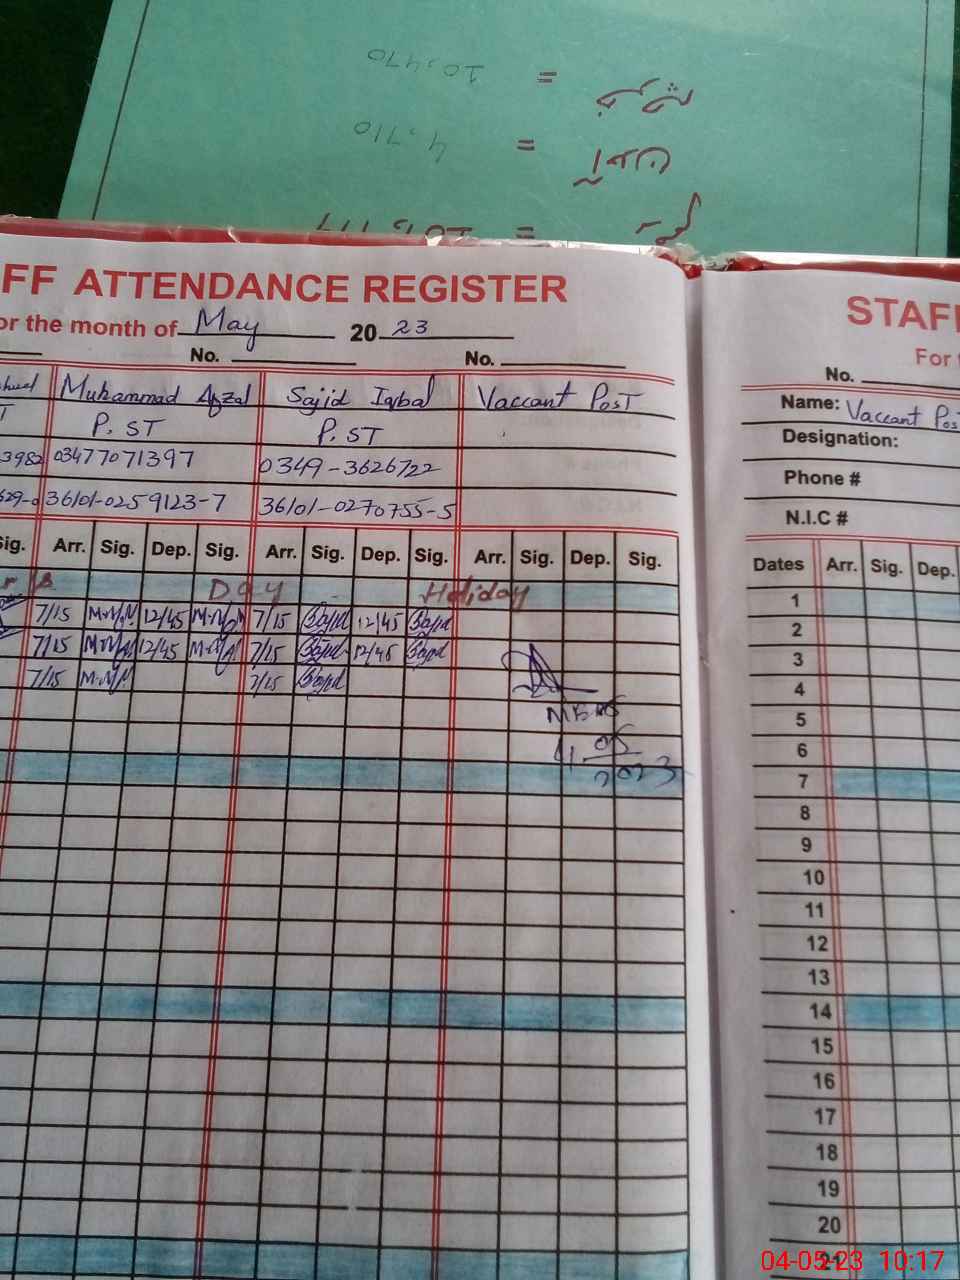 10,470 =
4,710 =
FF ATTENDANCE REGISTER
or the month of May 2023
No. No.
Muhammad Afzal Sajid Iqbal Vaccant Post
P.ST P.ST
3982 03477071397 0349-3626722
36101-0259123-7 36101-0270755-5
Sig. Arr. Sig. Dep. Sig. Arr. Sig. Dep. Sig. Arr. Sig. Dep. Sig.
Day Holiday
7/15 12/45 7/15 Sajid 12/45 Sajid
7/15 12/45 7/15 Sajid 12/45 Sajid
7/15 7/15 Sajid
4 05
2023
STAF
For t
No.
Name: Vaccant Pos
Designation:
Phone #
N.I.C #
Dates Arr. Sig. Dep.
1
2
3
4
5
6
7
8
9
10
11
12
13
14
15
16
17
18
19
20
21
04-05-23 10:17